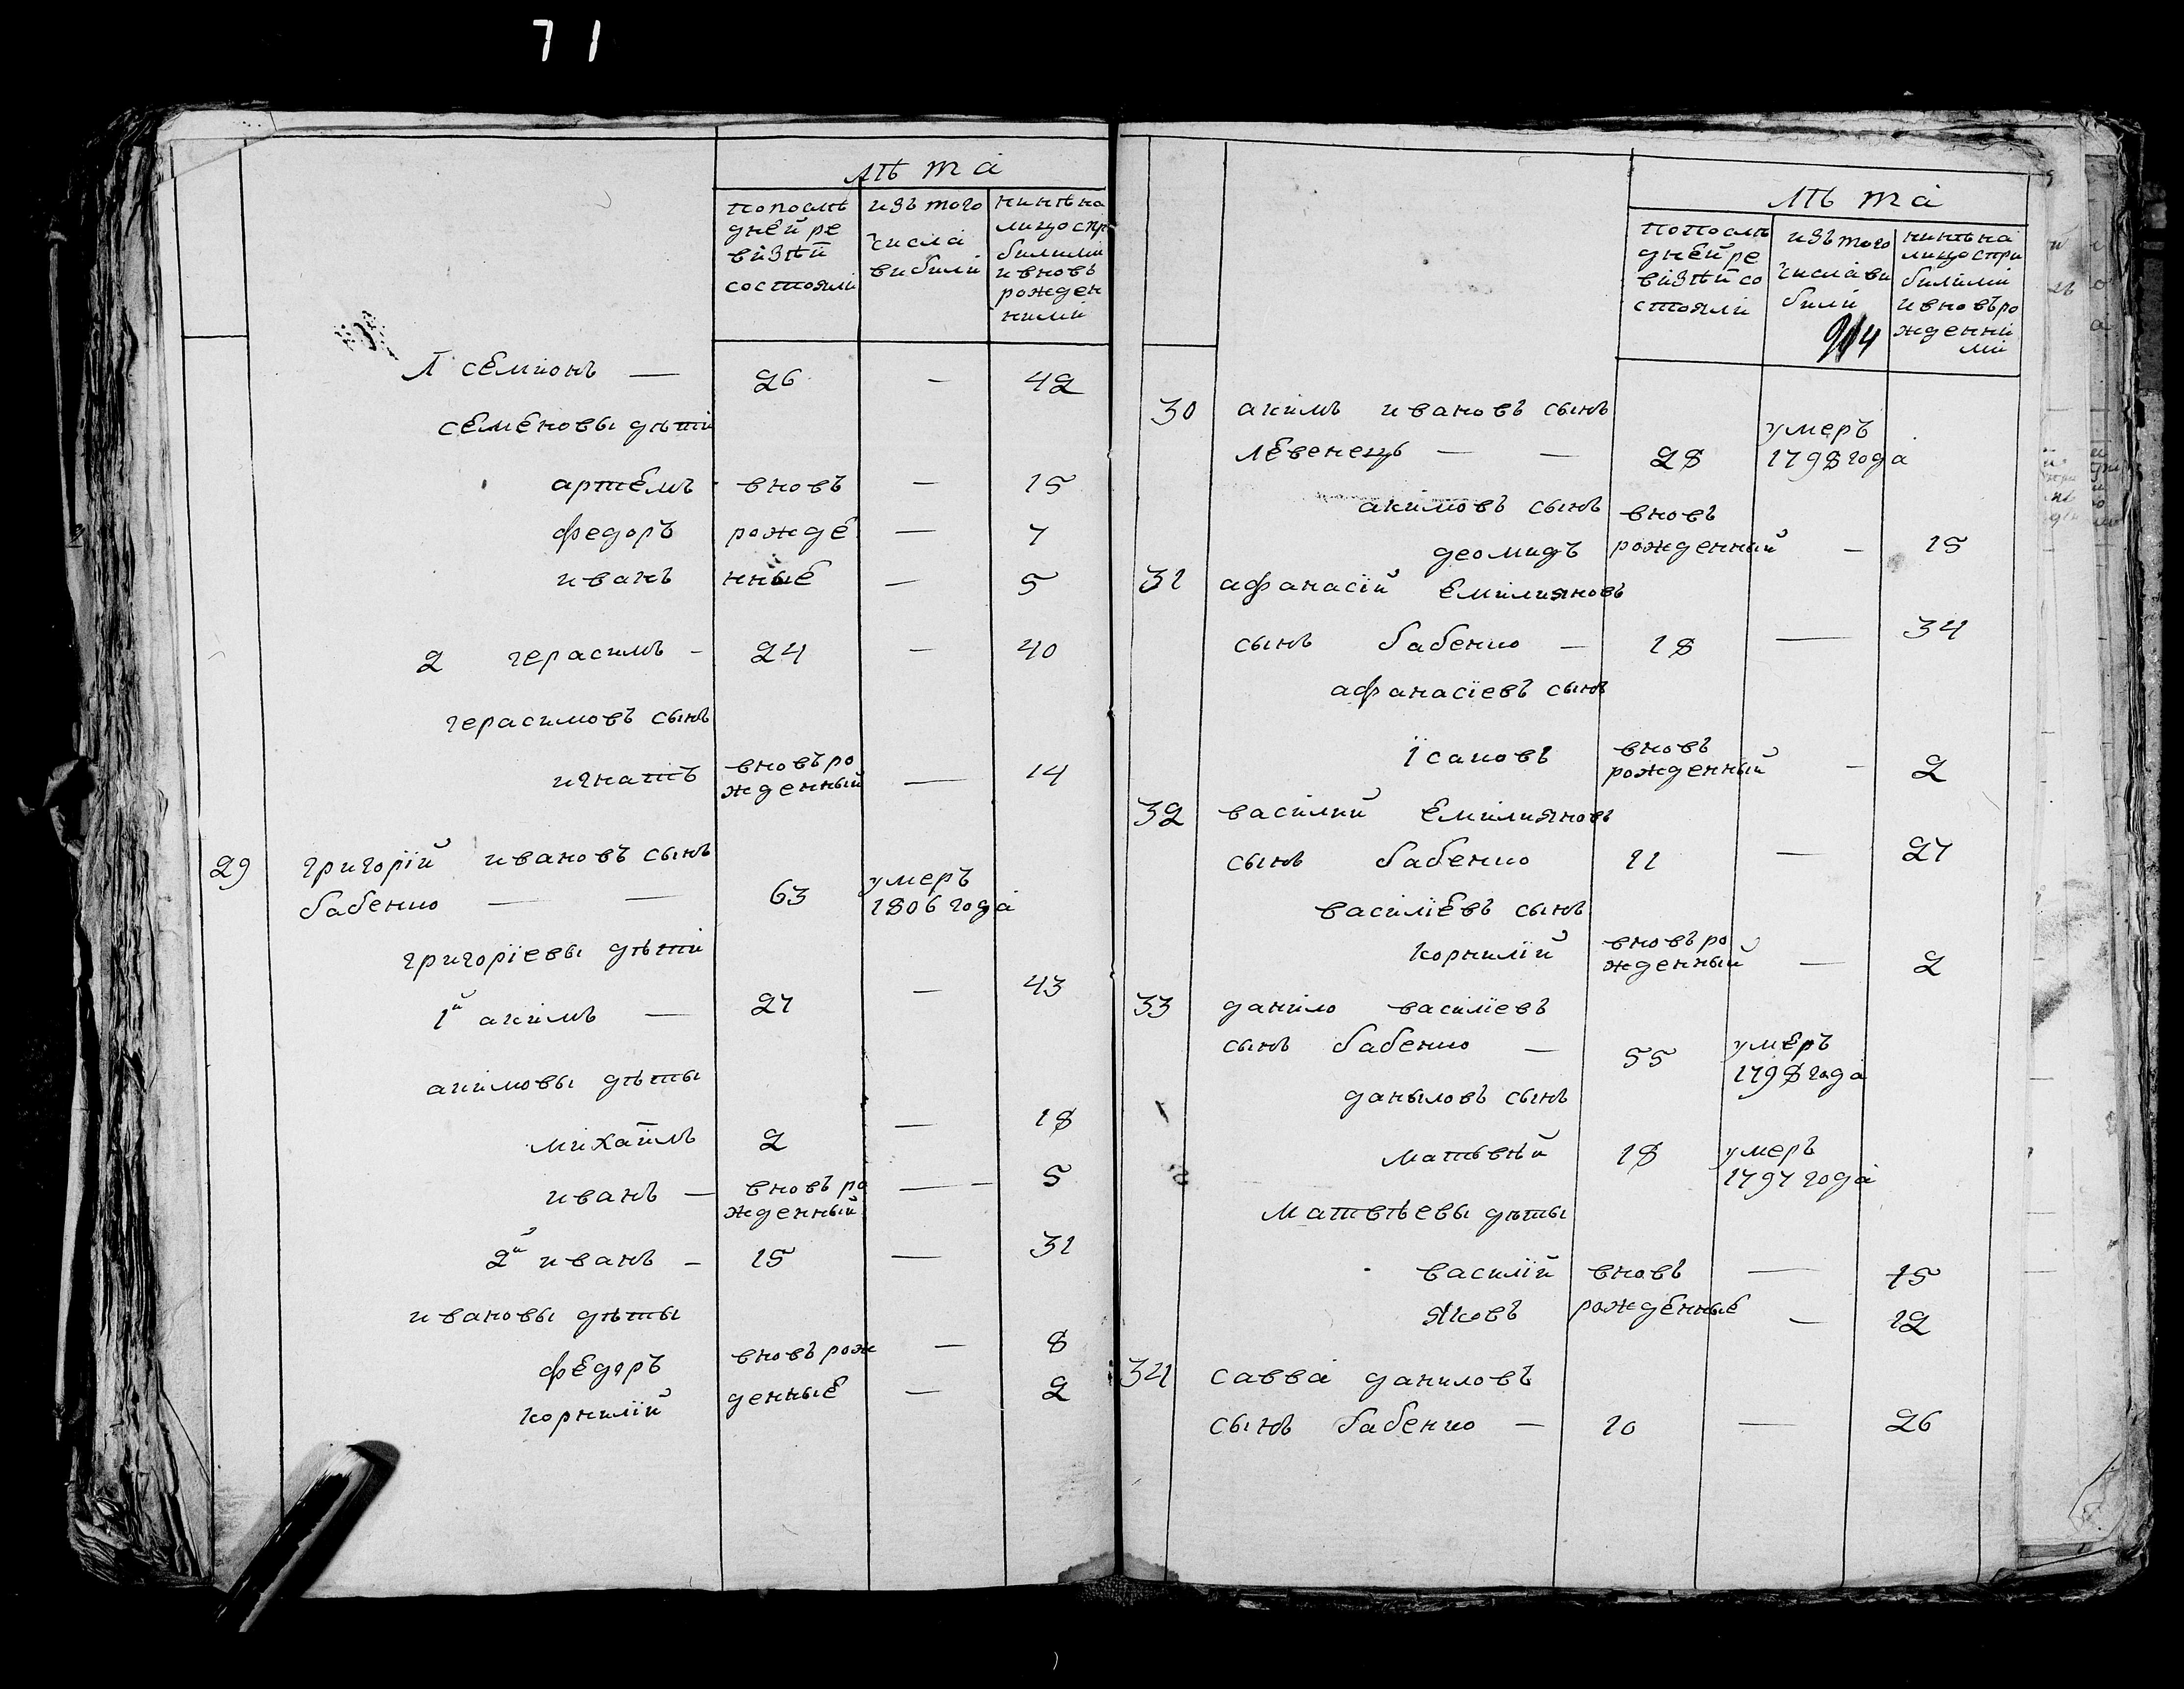 71
лѣта
попослѣ
дней ре
визѣй
состояли
изъ того
числа
вибили
нинѣна
лицоспр
билими
ивновь
рожден
ними
1 семіонъ — 26 — 42
семеновы дѣти
артемъ вновь — 15
федоръ рожде — 7
иванъ нные — 5
2 герасимъ — 24 — 40
герасимовъ сынъ
игнатъ вновь ро
жденный — 14
29 григорїй ивановъ сынъ
бабенко — — 63 умеръ
1806 года
григорїевы дѣти
1й акимъ — 27 — 43
акимовы дѣты
михаилъ 2 — 18
иванъ — вновь ро
жденный — 5
2й иванъ — 15 — 31
ивановы дѣты
федоръ вновь рож — 8
корнилїй денные — 2
лѣта
попослѣ
дней ре
визѣй со
стояли
изъ того
числа ви
били
нинѣ на
лицо спри
билими
ивновь ро
жденни
ми
914
30 акимъ ивановъ сынъ
левенець — — 28 умеръ
1798 года
акимовъ сынъ
деомидъ вновь
рожденный — 15
31 афанасїй емилияновъ
сынъ бабенко — 18 — 34
афанасїевъ сынъ
їсаковъ вновь
рожденный — 2
32 василий емилияновъ
сынъ бабенко 11 — 27
василїевъ сынъ
корнилїй вновь ро
жденный — 2
33 данило василїевъ
сынъ бабенко — 55 умеръ
1798 года
даныловъ сынъ
матьвѣй 18 умеръ
1797 года
матвѣевы дѣты
василїй вновь — 15
яковъ рожденные — 12
34 савва даниловъ
сынъ бабенко — 10 — 26